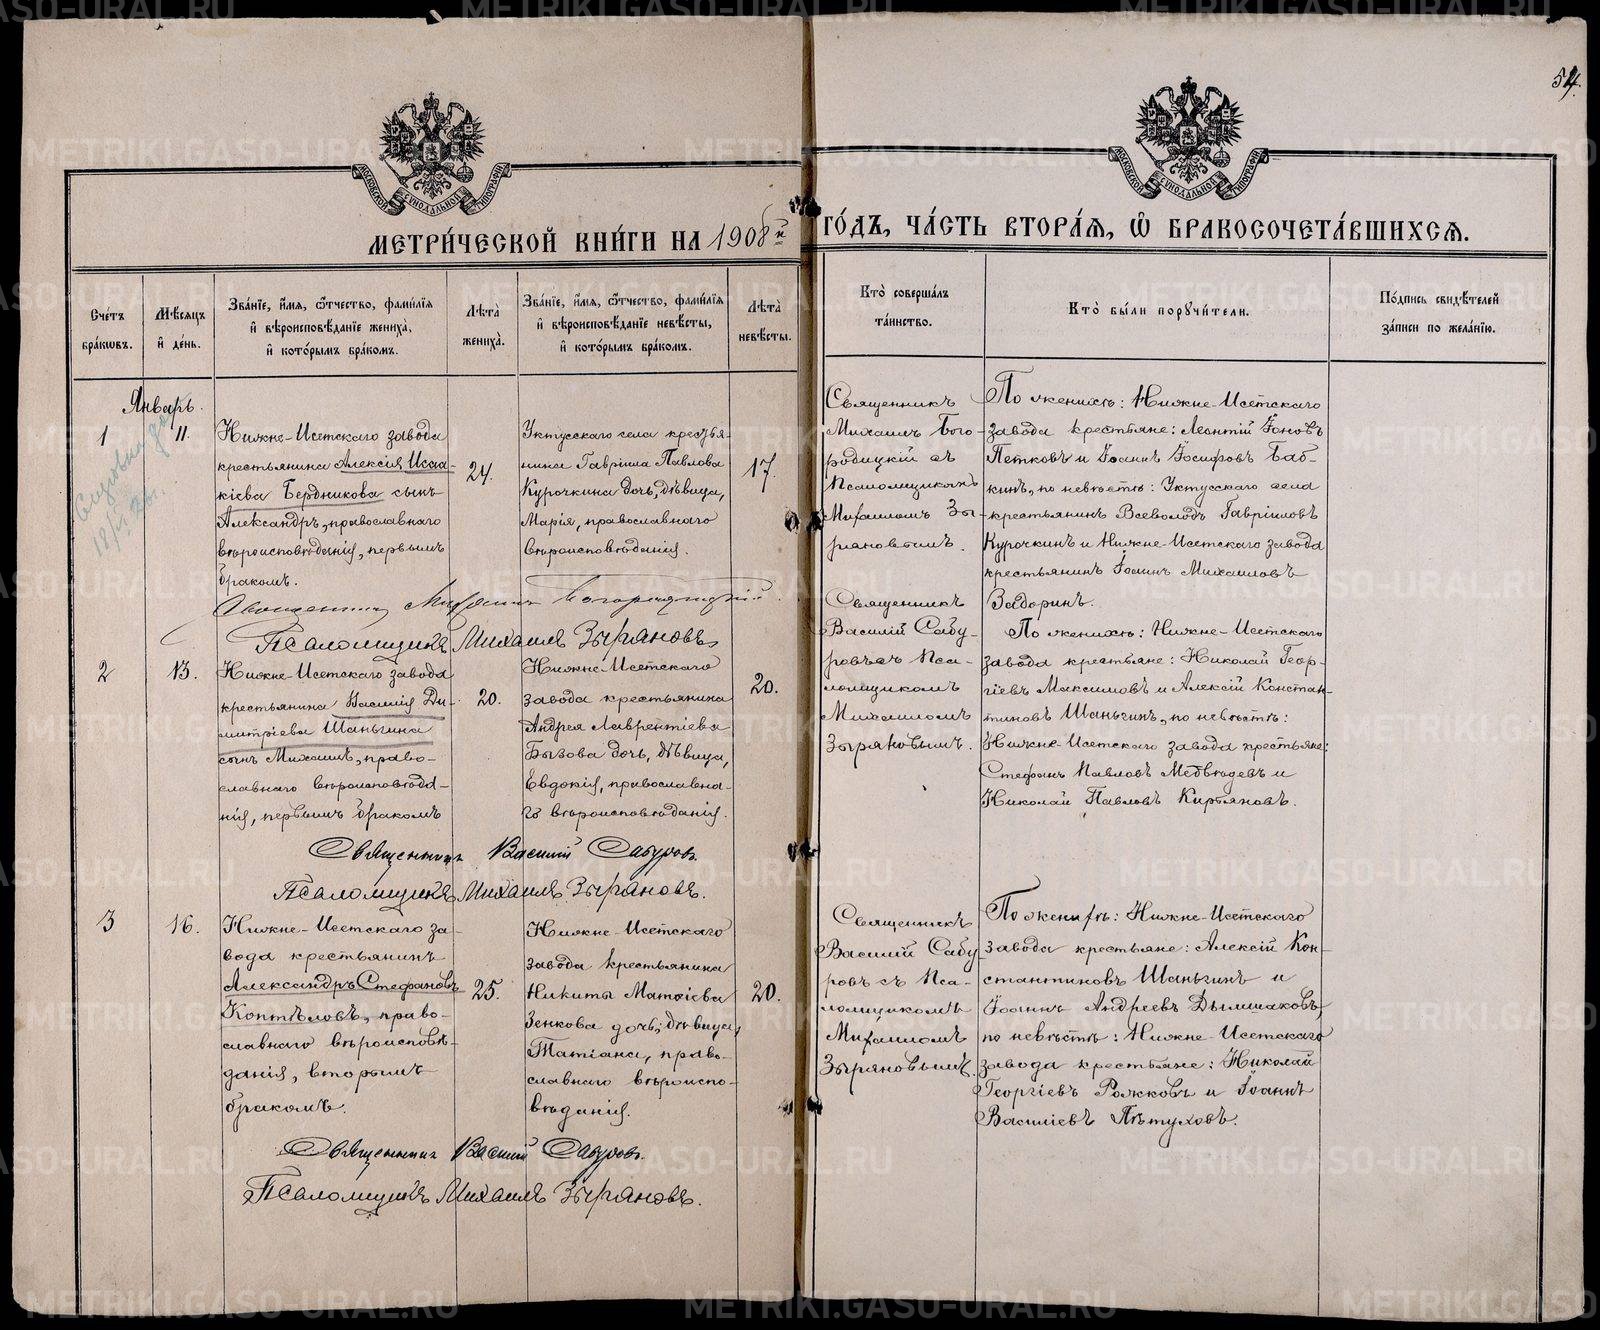 54.
МОСКОВСКОЙ СѴНОДАЛЬНОЙ ТИПОГРАФІИ
МОСКОВСКОЙ СѴНОДАЛЬНОЙ ТИПОГРАФІИ
МЕТРИ́ЧЕСКОЙ КНИ́ГИ НА 1908й ГО́ДЪ, ЧА́СТЬ ВТОРА́Ѧ, Ѽ БРАКОСОЧЕТА́ВШИХСѦ.
Сче́тъ бра́кѡвъ.
Мѣ́сѧцъ и҆ де́нь.
Зва́нїе, и҆́мѧ, ѻ҆́тчество, фамі́лїѧ и҆ вѣроисповѣ́данїе жениха̀, и҆ кото́рымъ бра́комъ.
Лѣ́та жениха̀.
Зва́нїе, и҆́мѧ, ѻ҆́тчество, фамі́лїѧ и҆ вѣроисповѣ́данїе невѣ́сты, и҆ кото́рымъ бра́комъ.
Лѣ́та невѣ́сты.
Кто̀ соверша́лъ та́инство.
Кто̀ бы́ли порꙋчи́тели.
По́дпись свидѣ́телей за́писи по жела́нїю.
Январь.
1
11.
Нижне-Исетскаго завода
крестьянина Алексія Исаа-
кіева Бердникова сынъ
Александръ, православнаго
вѣроисповѣданія, первымъ
бракомъ.
24.
Уктусскаго села крестья-
нина Гавріила Павлова
Курочкина дочь, дѣвица,
Марія, православнаго
вѣроисповѣданія.
17.
Священникъ
Михаилъ Бого-
родицкій съ
Псаломщикомъ
Михаиломъ Зы-
ряновымъ.
По женихѣ: Нижне-Исетскаго
завода крестьяне: Леонтій Іоновъ
Петковъ и Іоаннъ Іосифовъ Баб-
кинъ, по невѣстѣ: Уктусскаго села
крестьянинъ Всеволодъ Гавріиловъ
Курочкинъ и Нижне-Исетскаго завода
крестьянинъ Іоаннъ Михаиловъ
Задоринъ.
Священникъ Михаилъ Богородицкій
Псаломщикъ Михаилъ Зыряновъ
2
13.
Нижне-Исетскаго завода
крестьянина Василія Ди-
митріева Шаньгина
сынъ Михаилъ, право-
славнаго вѣроисповѣда-
нія, первымъ бракомъ
20.
Нижне-Исетскаго
завода крестьянина
Андрея Лаврентіева
Бызова дочь, дѣвица,
Евдокія, православна-
го вѣроисповѣданія.
20.
Священникъ
Василій Сабу-
ровъ съ Пса-
ломщикомъ
Михаиломъ
Зыряновымъ.
По женихѣ: Нижне-Исетскаго
завода крестьяне: Николай Геор-
гіевъ Максимовъ и Алексій Констан-
тиновъ Шаньгинъ, по невѣстѣ:
Нижне-Исетскаго завода крестьяне:
Стефанъ Павловъ Медвѣдевъ и
Николай Павловъ Кирьяновъ.
Священникъ Василій Сабуровъ
Псаломщикъ Михаилъ Зыряновъ.
3
16.
Нижне-Исетскаго за-
вода крестьянинъ
Александръ Стефановъ
Коптѣловъ, право-
славнаго вѣроисповѣ-
данія, вторымъ
бракомъ.
25.
Нижне-Исетскаго
завода крестьянина
Никиты Матѳіева
Зенкова дочь, дѣвица,
Татіана, право-
славнаго вѣроиспо-
вѣданія.
20.
Священникъ
Василій Сабу-
ровъ съ Пса-
ломщикомъ
Михаиломъ
Зыряновымъ.
По женихѣ: Нижне-Исетскаго
завода крестьяне: Алексій Кон-
стантиновъ Шаньгинъ и
Іоаннъ Андреевъ Дымшаковъ,
по невѣстѣ: Нижне-Исетскаго
завода крестьяне: Николай
Георгіевъ Рожковъ и Іоаннъ
Василіевъ Пѣтуховъ.
Священникъ Василій Сабуровъ.
Псаломщикъ Михаилъ Зыряновъ.
METRIKI.GASO-URAL.RU